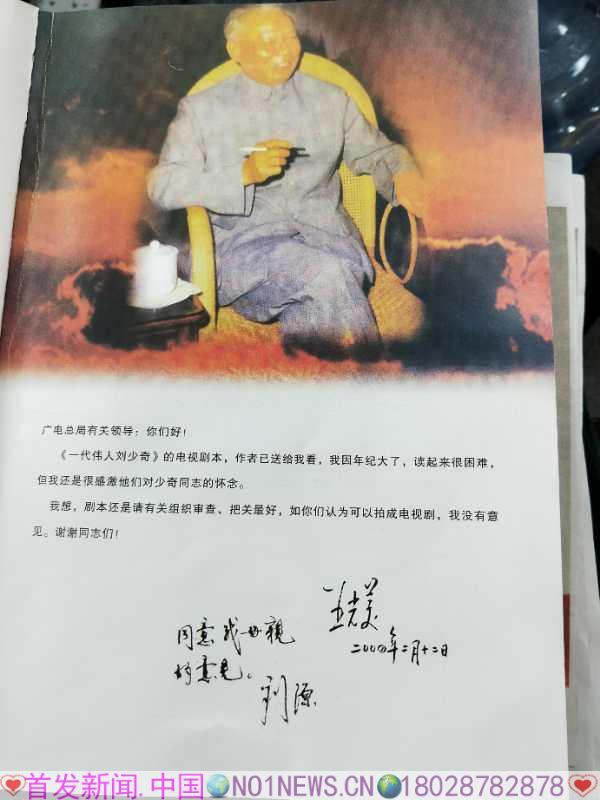 广电总局有关领导：你们好！
《一代伟人刘少奇》的电视剧本，作者已送给我看，我因年纪大了，读起来很困难，
但我还是很感激他们对少奇同志的怀念。
我想，剧本还是请有关组织审查、把关最好，如你们认为可以拍成电视剧，我没有意
见。谢谢同志们！
王光美
二〇〇四年二月十二日
同意我母亲
的意见。
刘源
❤首发新闻.中国🌏NO1NEWS.CN🌏18028782878❤